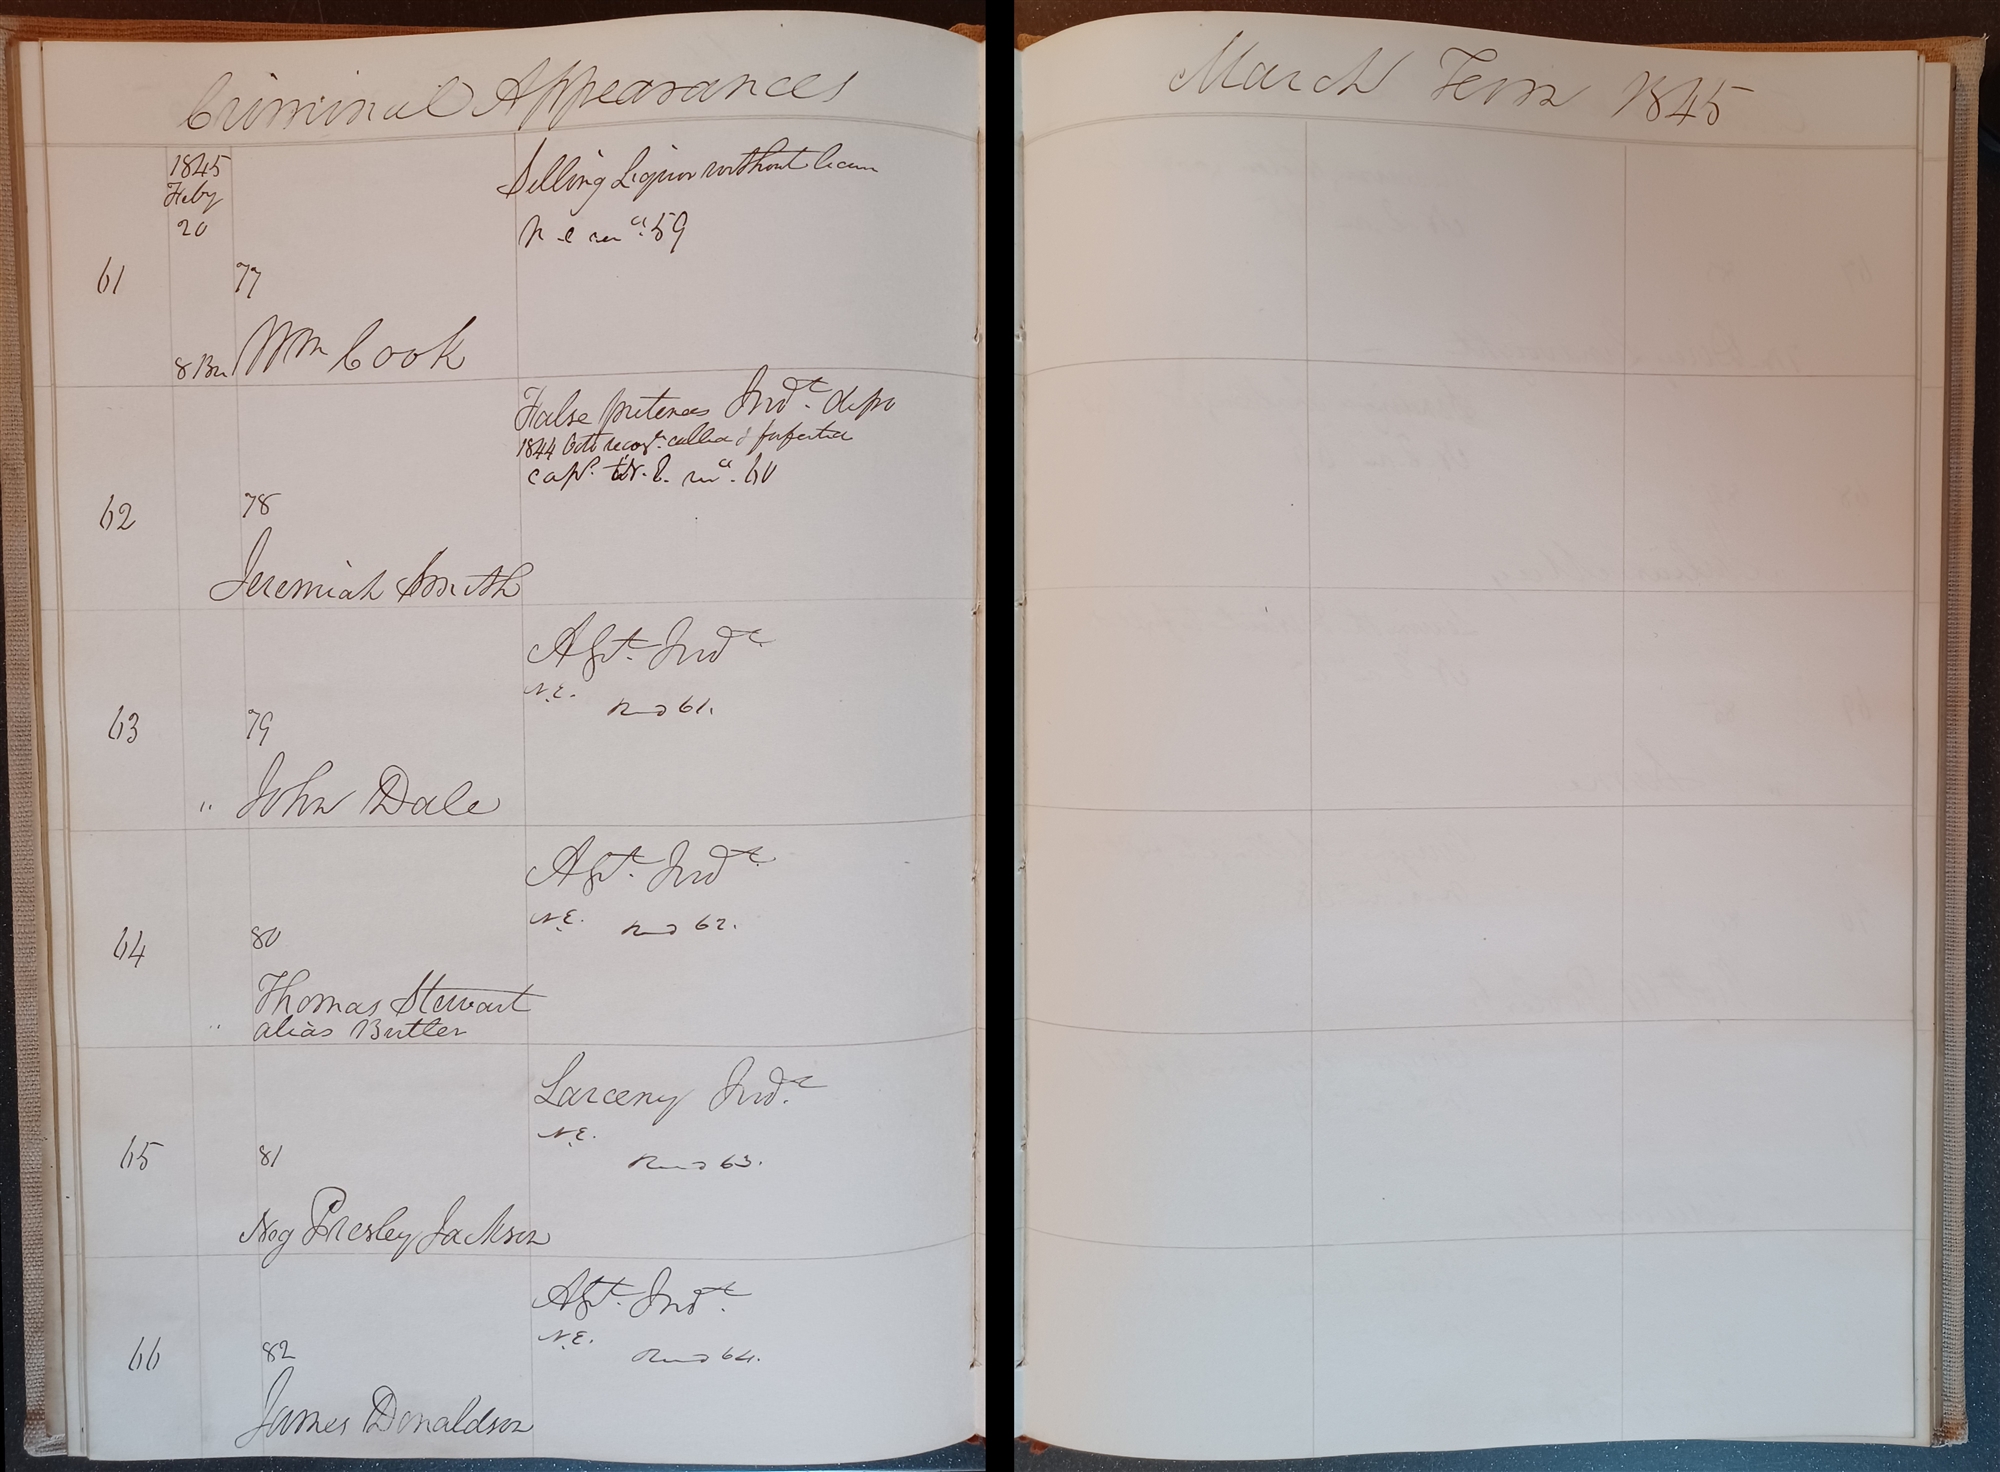 Criminal Appearances
March Term 1845
1845
Feby
20
Selling Liquor without licen
N. E. 59
61
77
8 Bn
Wm Cook
False pretences Indt. depo
1844 Oct recogn. called & forfeited
caps. N. E. 60
62
78
Jeremiah Smith
Aslt. Indt.
N.E.
61.
63
79
" John Dale
Aslt. Indt.
N.E.
62.
64
80
Thomas Stewart
" alias Butler
Larceny Indt.
N.E.
63.
65
81
Neg Presley Jackson
Aslt. Indt.
N.E.
64.
66
82
James Donaldson